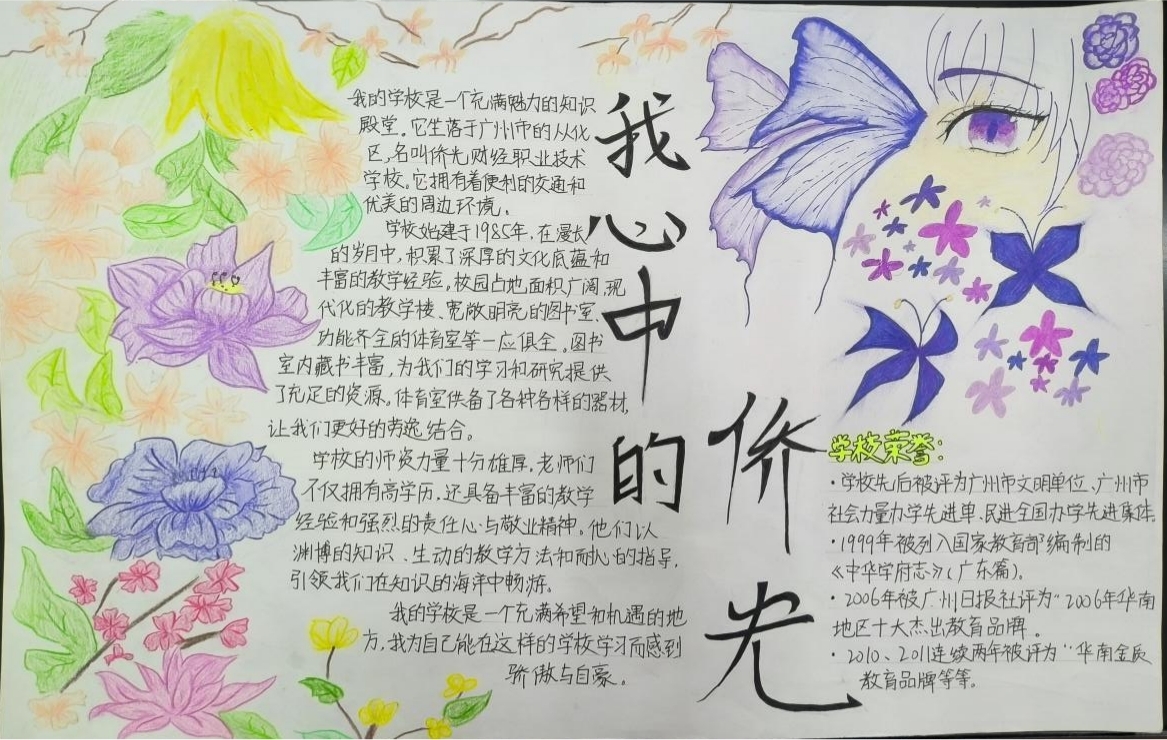 我心中的
侨光
我的学校是一个充满魅力的知识
殿堂。它坐落于广州市的从化
区,名叫侨光财经职业技术
学校。它拥有着便利的交通和
优美的周边环境。
学校始建于1985年,在漫长
的岁月中,积累了深厚的文化底蕴和
丰富的教学经验。校园占地面积广阔,现
代化的教学楼、宽敞明亮的图书室、
功能齐全的体育室等一应俱全。图书
室内藏书丰富,为我们的学习和研究提供
了充足的资源。体育室供备了各种各样的器材,
让我们更好的劳逸结合。
学校的师资力量十分雄厚。老师们
不仅拥有高学历,还具备丰富的教学
经验和强烈的责任心与敬业精神。他们以
渊博的知识、生动的教学方法和耐心的指导,
引领我们在知识的海洋中畅游。
我的学校是一个充满希望和机遇的地
方,我为自己能在这样的学校学习而感到
骄傲与自豪。
学校荣誉:
·学校先后被评为广州市文明单位、广州市
社会力量办学先进单、民进全国办学先进集体.
·1999年被列入国家教育部编制的
《中华学府志》(广东篇)。
·2006年被广州日报社评为"2006年华南
地区十大杰出教育品牌。
·2010、2011连续两年被评为"华南金质
教育品牌等等。